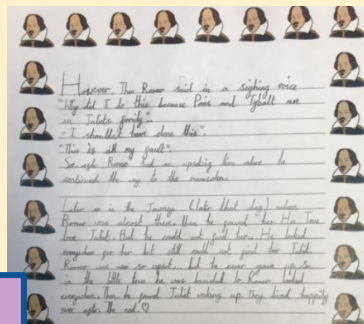 However, Then Romeo said in a sighing voice
"Why did I do this because Paris and Tybalt are
in Juliets family".
"I shouldn't have done this".
"This is all my fault".
So after Romeo had an upseting time alone he
continued the way to the mausoleum.
Later on in the Journey (later that day) when
Romeo was almost there. Then he found her. His True
love Juliet. But he could not find her. He looked
everywhere for her but still could not find her Juliet
Romeo was so upset... but he never gave up. So
in the little town he was banished to Romeo looked
everywhere. Then he found Juliet waking up. They lived happily
ever after. The end ♡